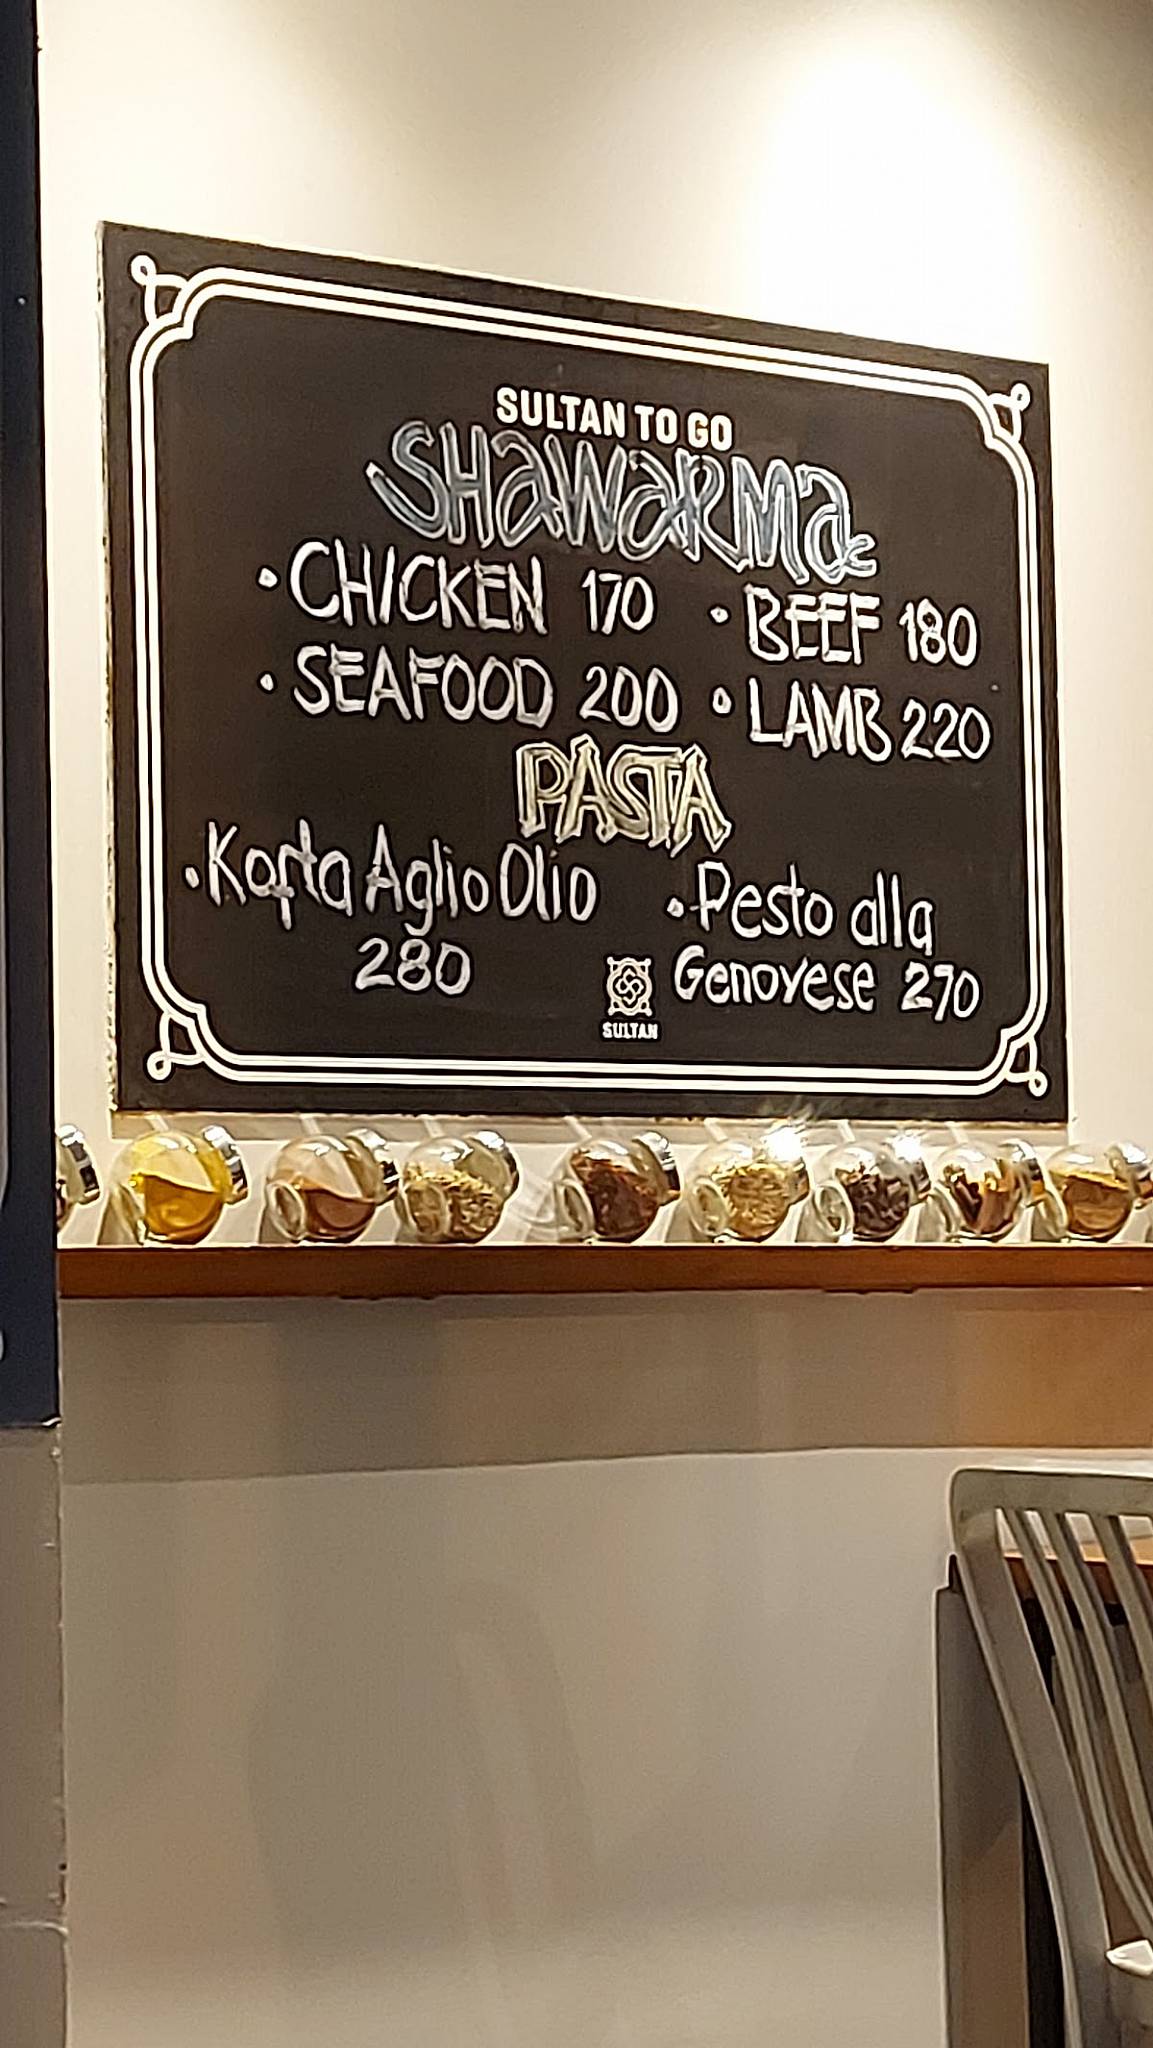 SULTAN TO GO
SHaWaRMa
• CHICKEN 170 • BEEF 180
• SEAFOOD 200 • LAMB 220
PASTA
• Kafta Aglio Olio
280
• Pesto alla
Genovese 270
SULTAN